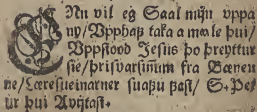 Nu vil eg Saal mijn vppa
ny/ Vpphaf taka a mäle þui/
Vppstood Jesus þo þreyttur
sie/ þrisvarsinum fra Bænen
ne/ Læresueinarner suafu fast/ S. Pet
ur þui Avijtast.